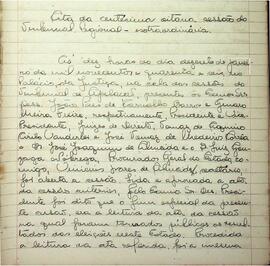 Acta da centésima oitava sessão do
Tribunal Regional - extraordinária.
Às dez horas do dia dezoito de janei-
ro de mil novecentos e quarenta e seis no
Palácio da Justiça, na sala das sessões do
Tribunal de Apelação, presentes os
João Paes de Carvalho Barros e Genaro
Freire, respectivamente, Presidente e Vice-
Presidente, Juizes de Direito,
e José Tavares de
e Dr. José Joaquim de Almeida e o Dr. Luis Gon-
zaga Nobrega, Procurador Geral do Estado, co-
migo, Soares de Almeida, secretário,
foi aberta a sessão. Lida e aprovada a ata
da sessão anterior, pelo Exmo Sr. Des. Presi-
dente foi dito que o fim especial da presente
sessão era a leitura da ata da sessão
na qual foram tornados públicos os resul-
tados das eleições neste Estado. Procedida
a leitura da ata referida, foi a mesma